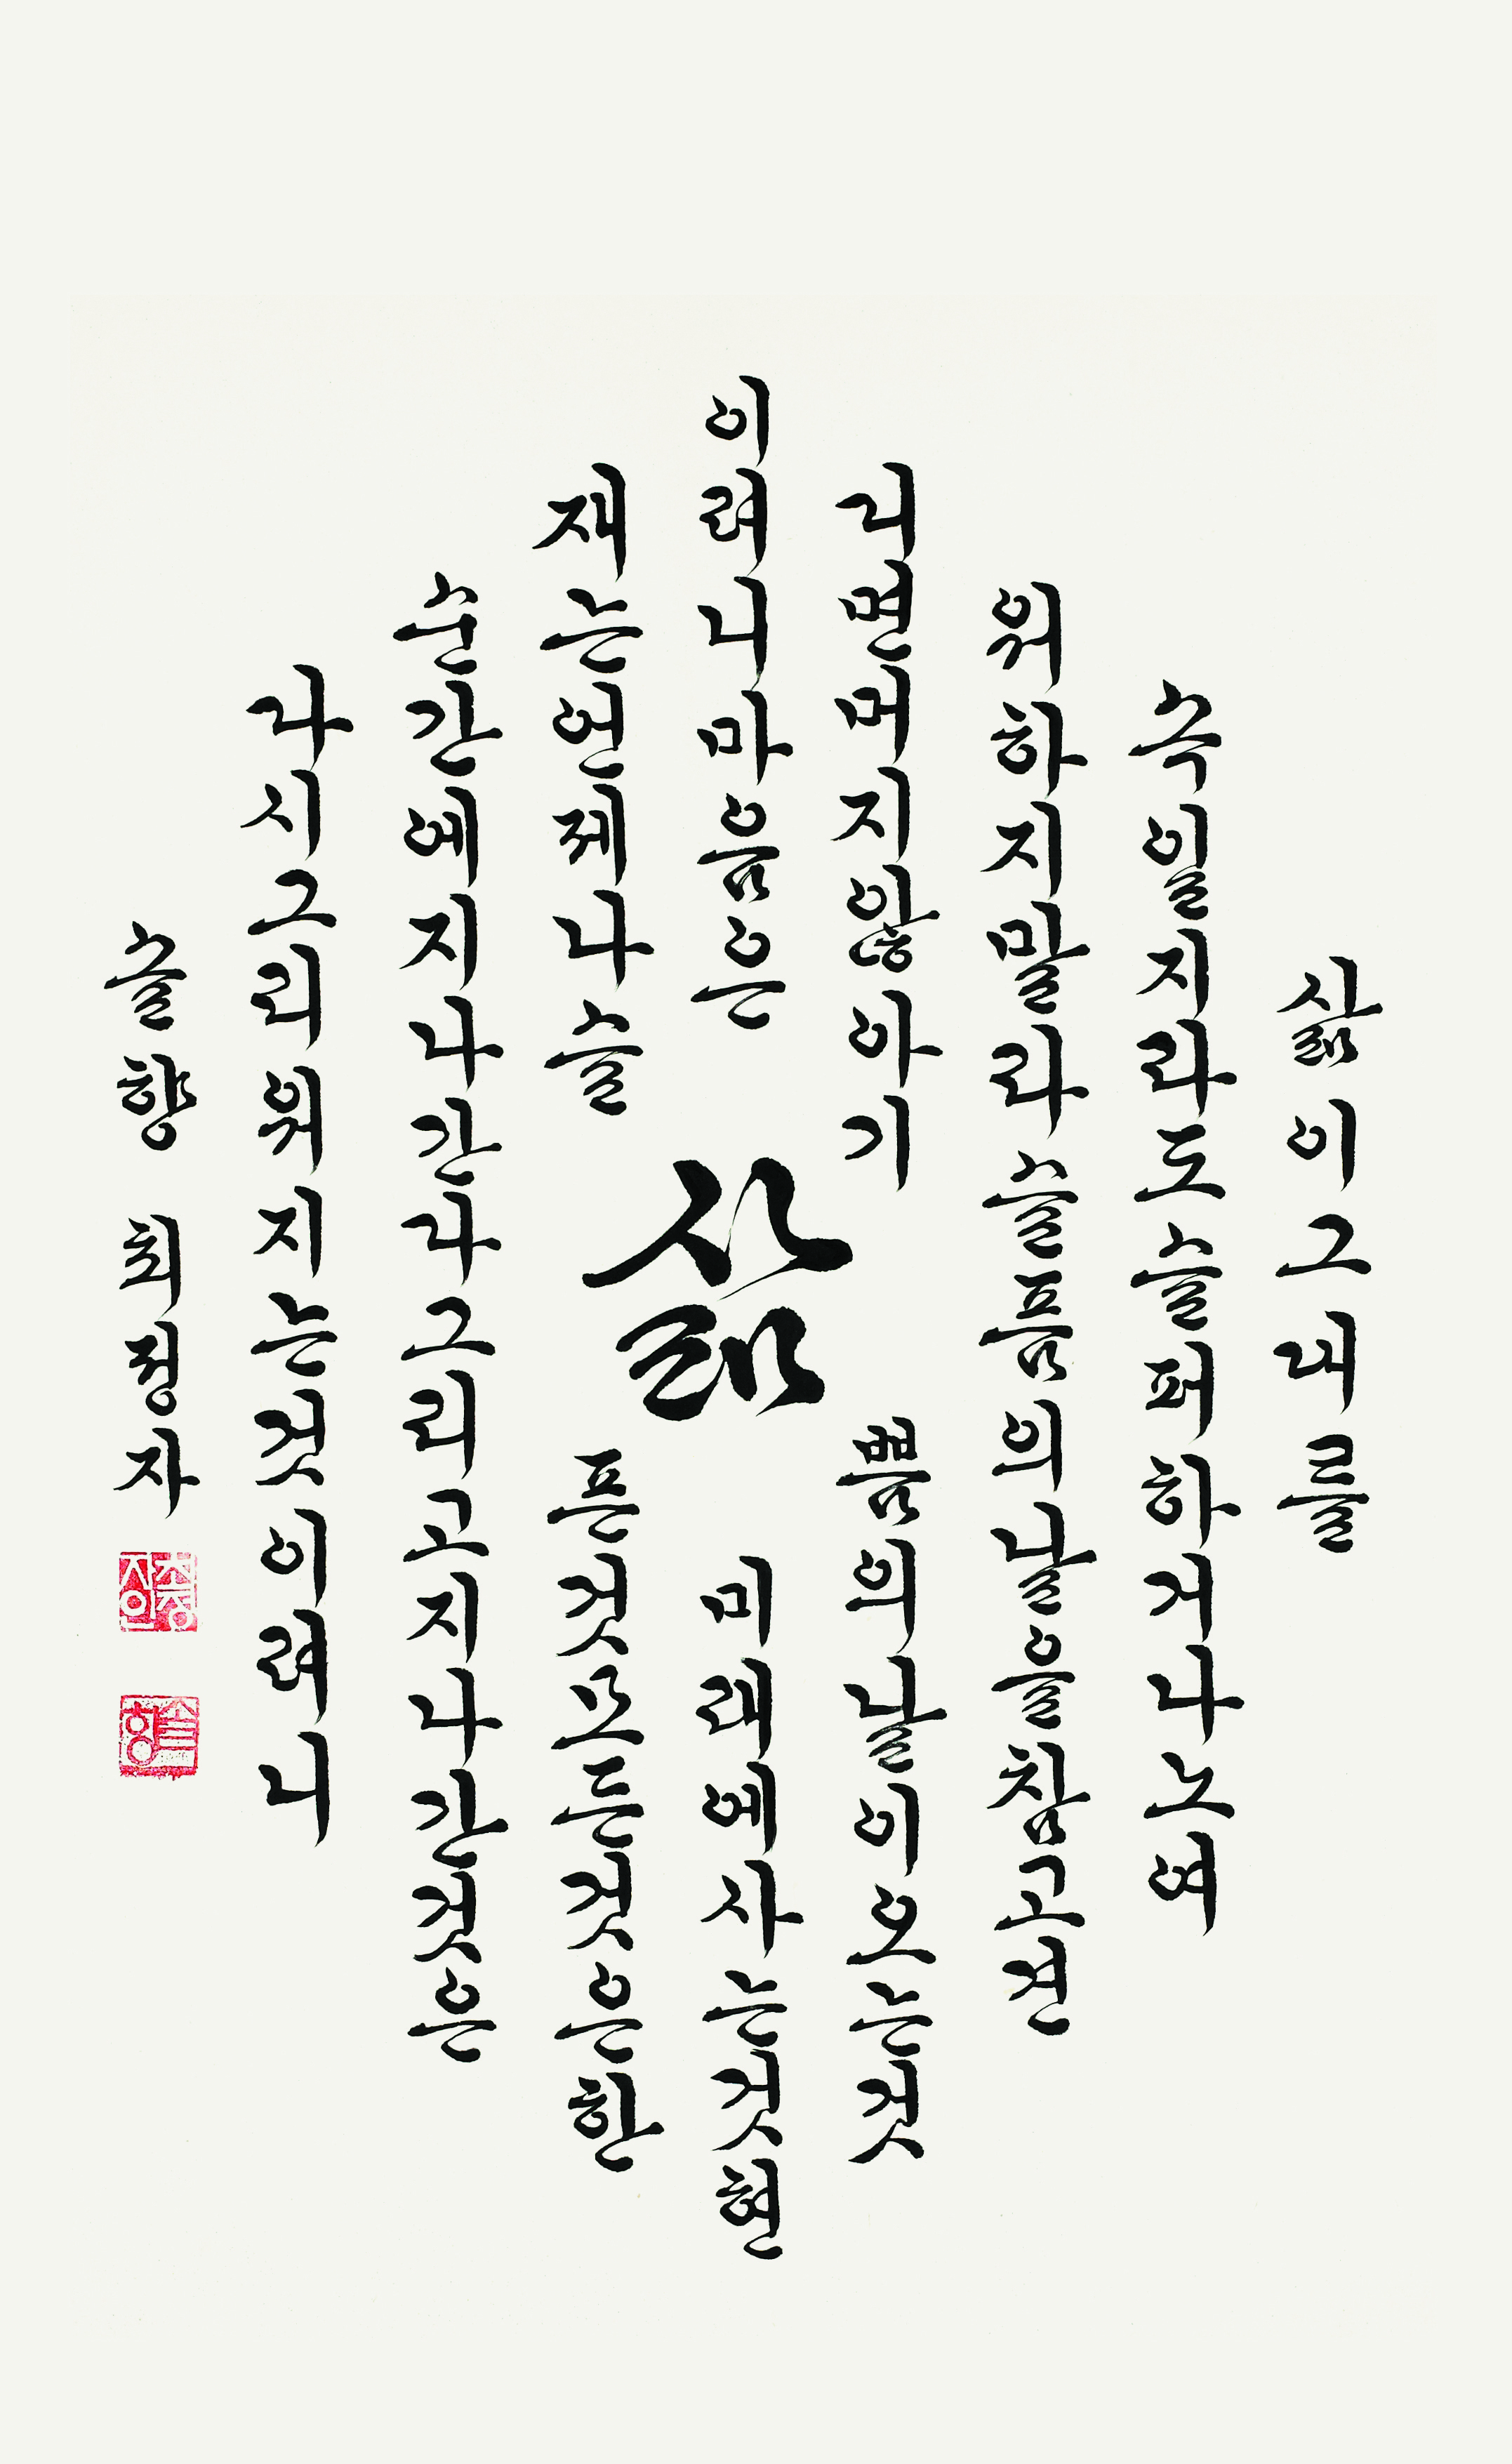 삶이그대를
속일지라도슬퍼하거나노여
워하지말라슬픔의날을참고견
디면머지않아기쁨의날이오는것
이려니마음은 미래에사는것현
재는언제나슬픈것모든것은한
순간에지나간다그리고지나간것은
다시그리워지는것이려니
삶
솔향 최정자
최정자인
솔향